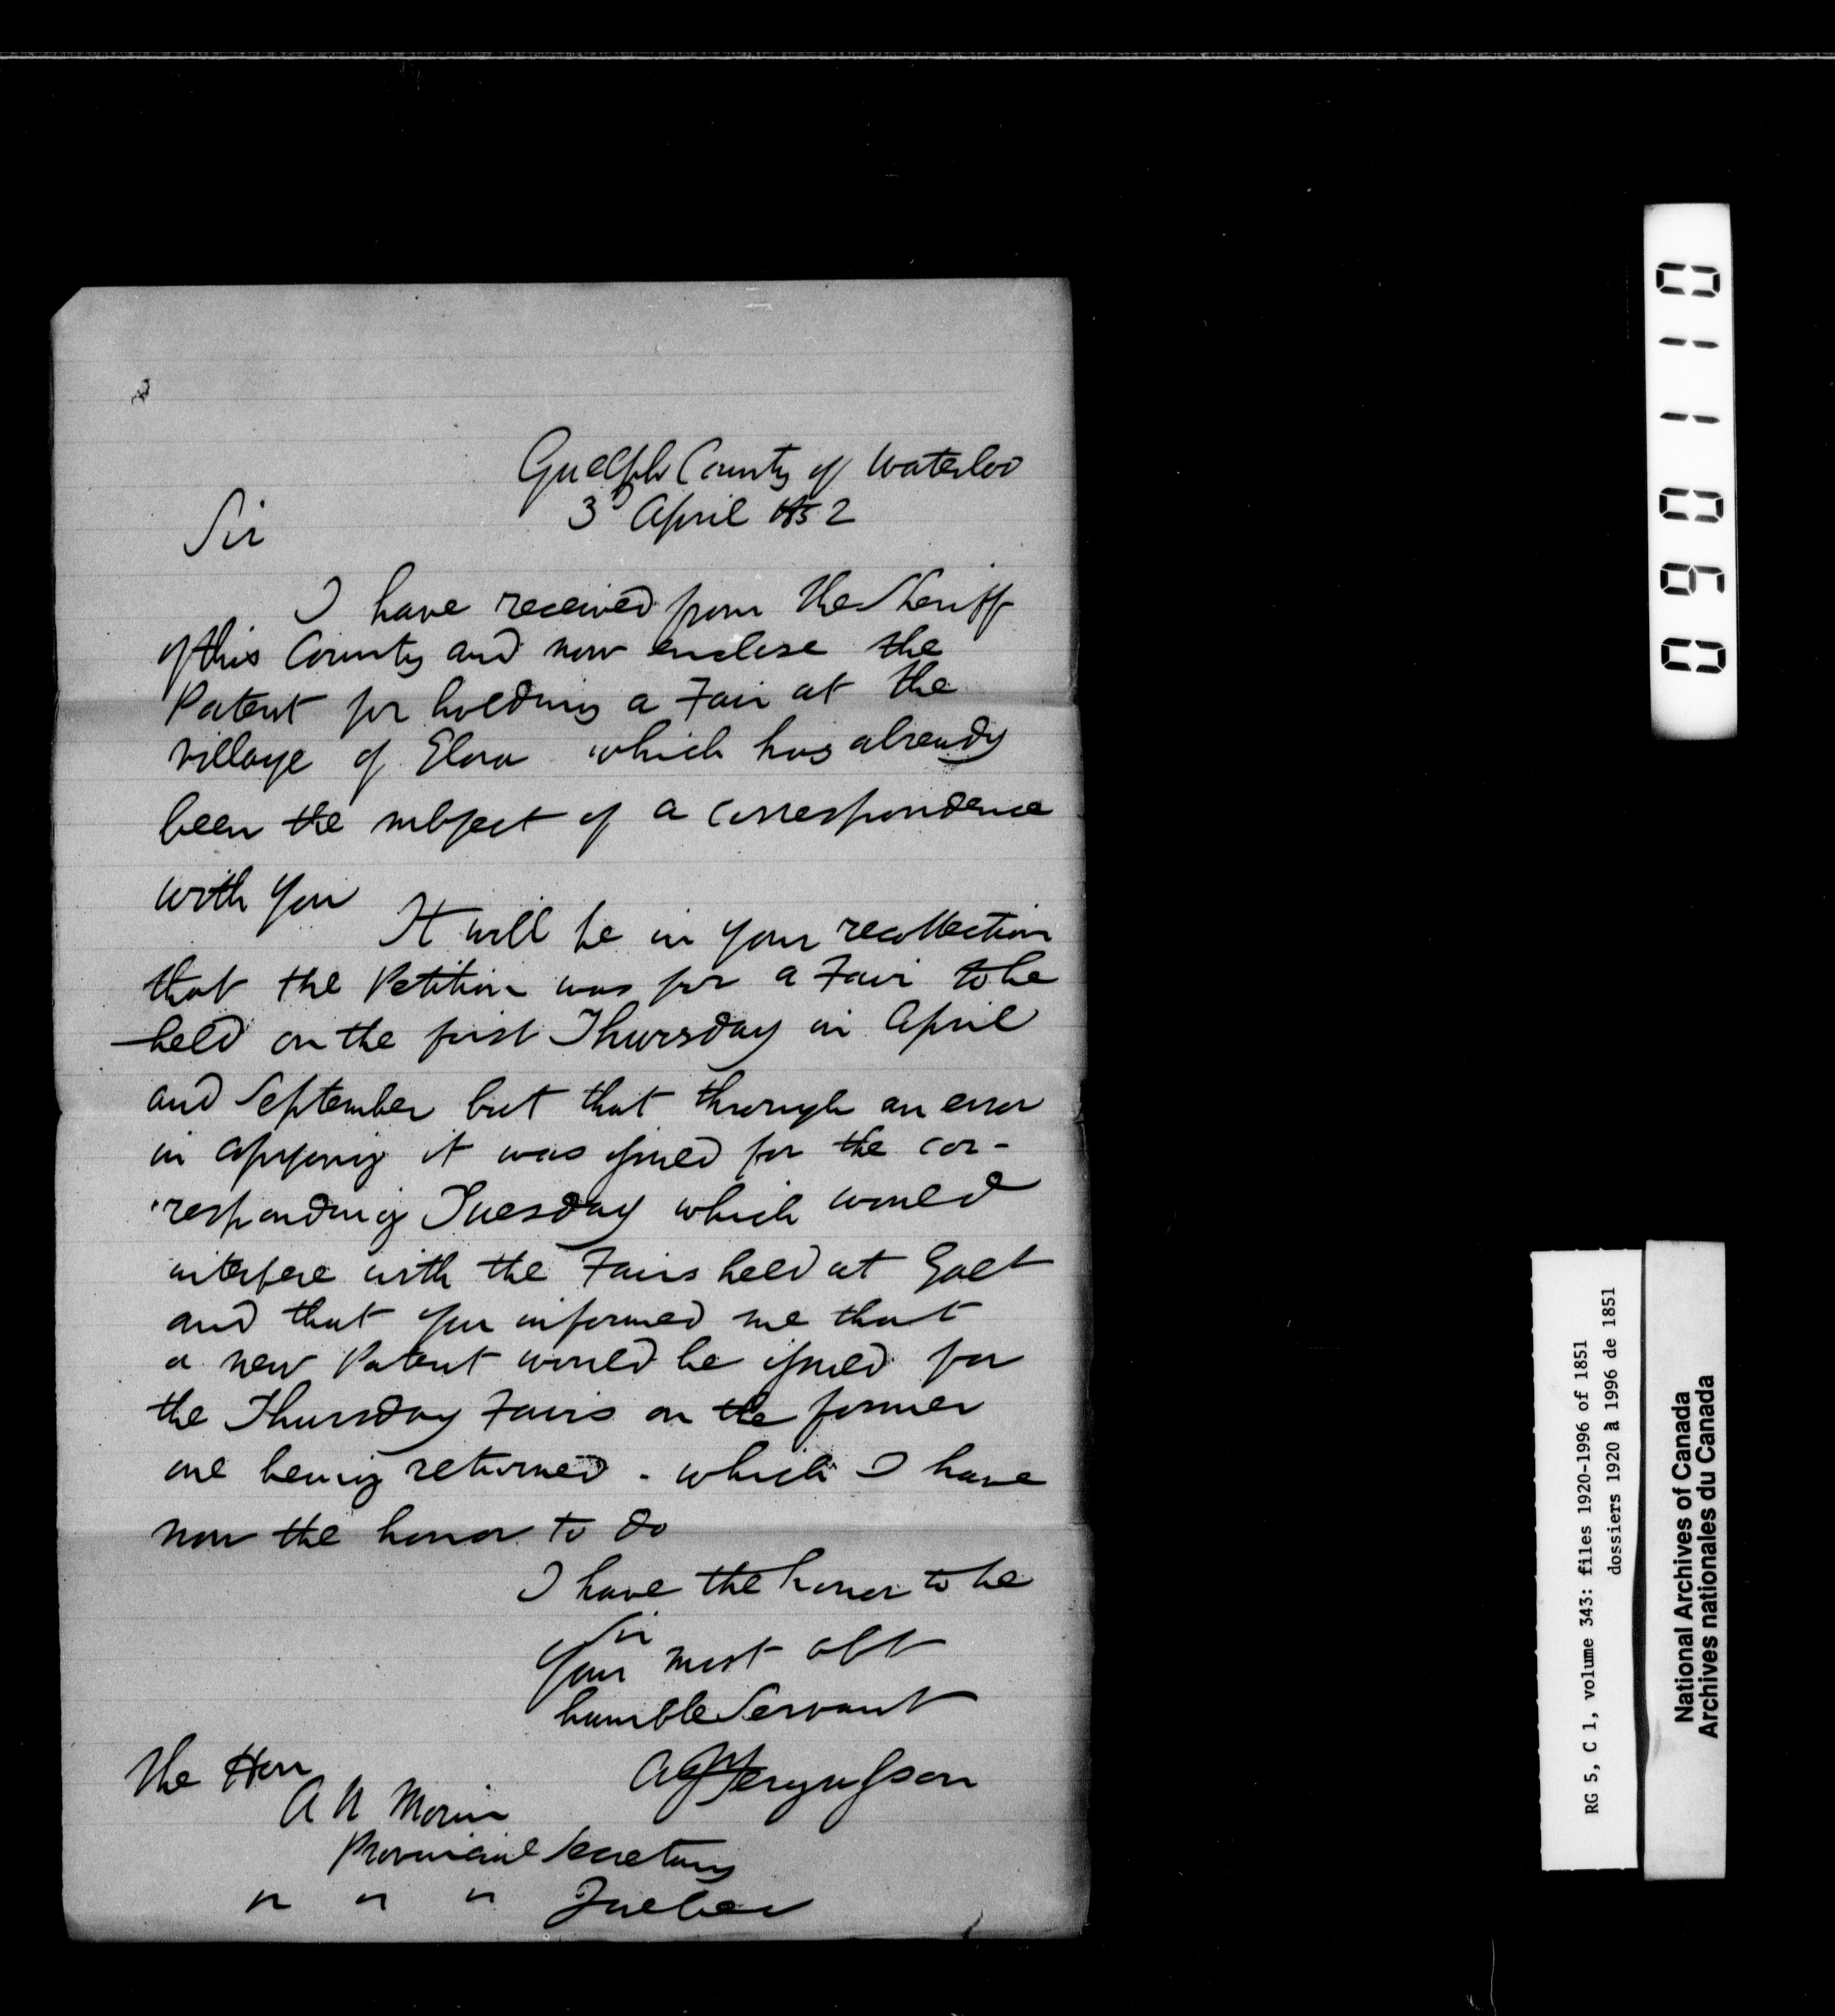 Guelph County of Waterloo
3d April 1852
Sir
I have received from the Sheriff
of this County and now enclose the
Patent for holding a Fair at the
village of Elora which has already
been the subject of a correspondence
with You
It will be in your recollection
that the Petition was for a Fair to be
held on the first Thursday in April
and September but that through an error
in copying it was issued for the cor-
responding Tuesday which would
interfere with the Fairs held at Galt
and that you informed me that
a new Patent would be issued for
the Thursday Fairs on the former
one being returned - which I have
now the honor to do
I have the honor to be
Sir
Your most obt
humble Servant
Fergusson
The Hon
A N Morin
Provincial Secretary
" " " Quebec
090110
RG 5, C 1, volume 343: files 1920-1996 of 1851
dossiers 1920 à 1996 de 1851
National Archives of Canada
Archives nationales du Canada